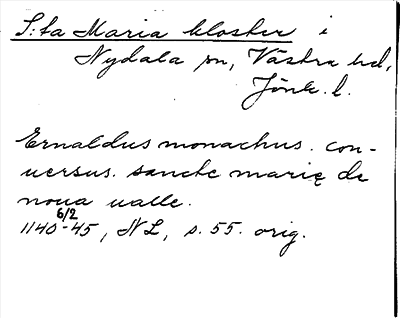 S:ta Maria kloster i
Nydala sn, Västra hd,
Jönk. l.
Ernaldus monachus. con-
uersus. sancte marię de
noua ualle.
1140 6/2 -45, NL, s. 55. orig.